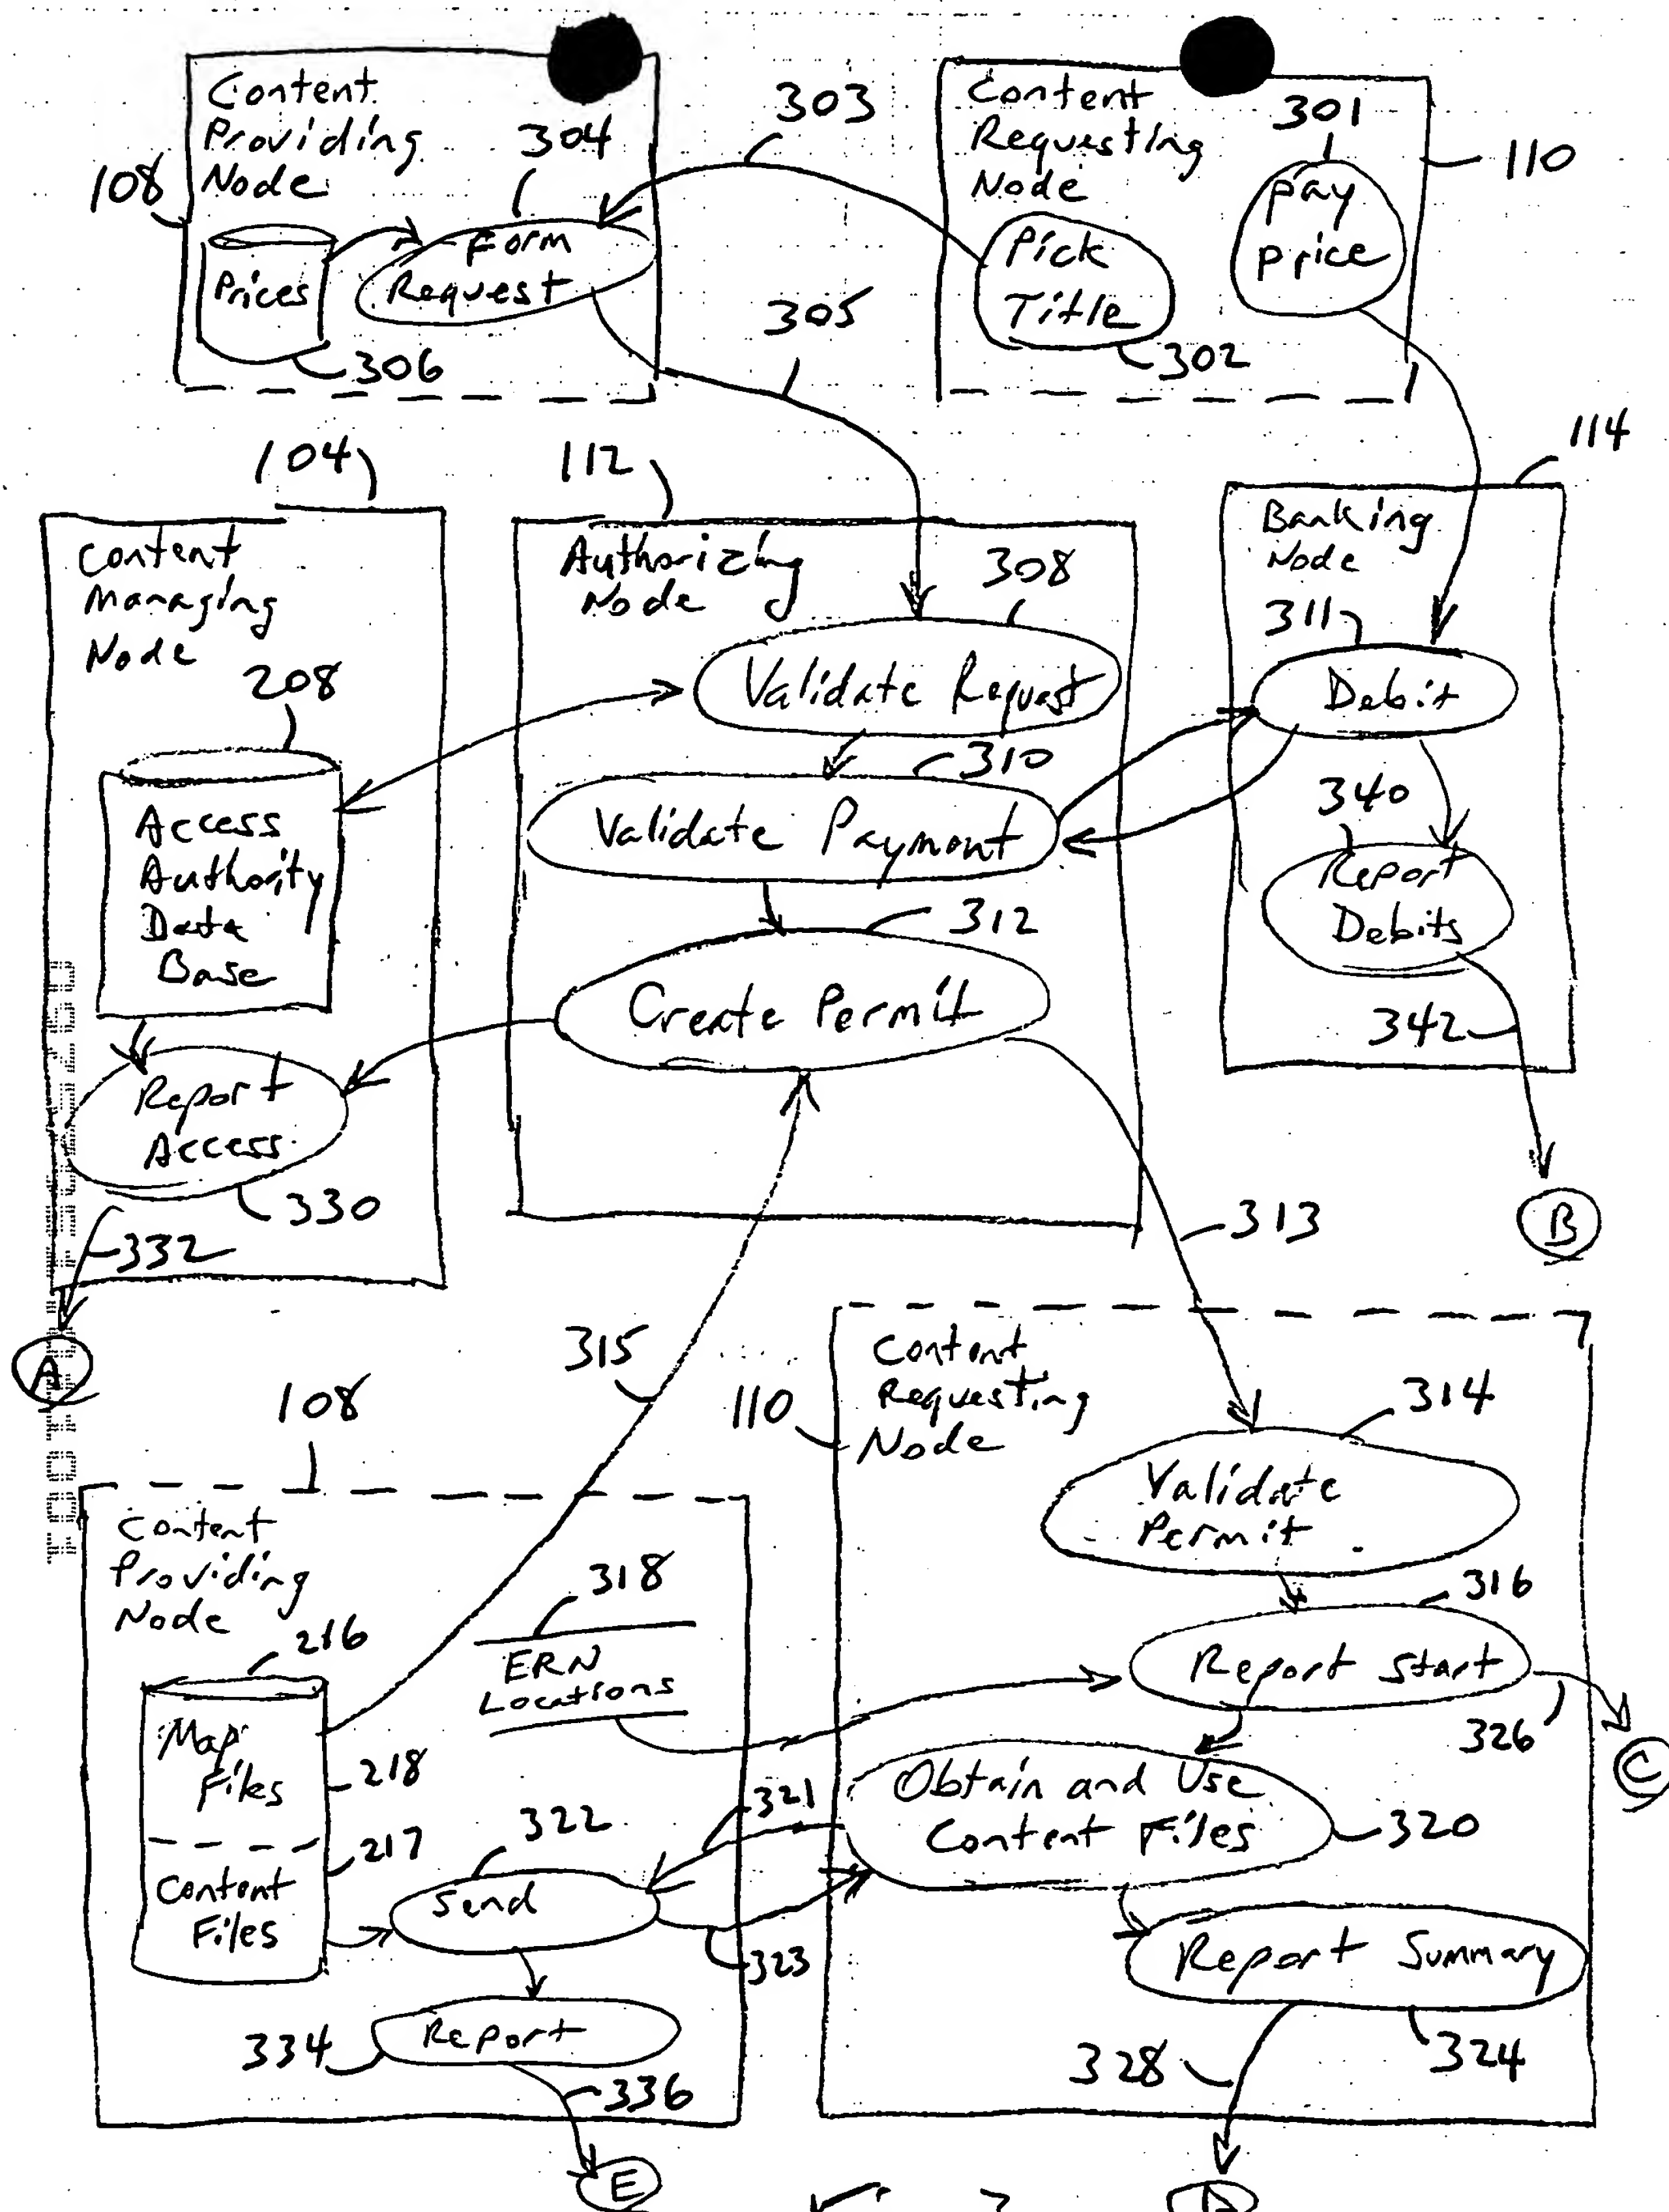 Content
Providing
Node
304
108
Form
Request
Prices
306
303
305
Content
Requesting
Node
301
110
Pay
Price
Pick
Title
302
104
Content
Managing
Node
208
Access
Authority
Data
Base
Report
Access
330
332
A
112
Authorizing
Node
308
Validate Request
310
Validate Payment
312
Create Permit
313
315
114
Banking
Node
311
Debit
340
Report
Debits
342
B
108
Content
Providing
Node
216
Map
Files
218
217
Content
Files
318
ERN
Locations
322
Send
321
323
334
Report
336
E
110
Content
Requesting
Node
314
Validate
Permit
316
Report Start
326
C
Obtain and Use
Content Files
320
Report Summary
324
328